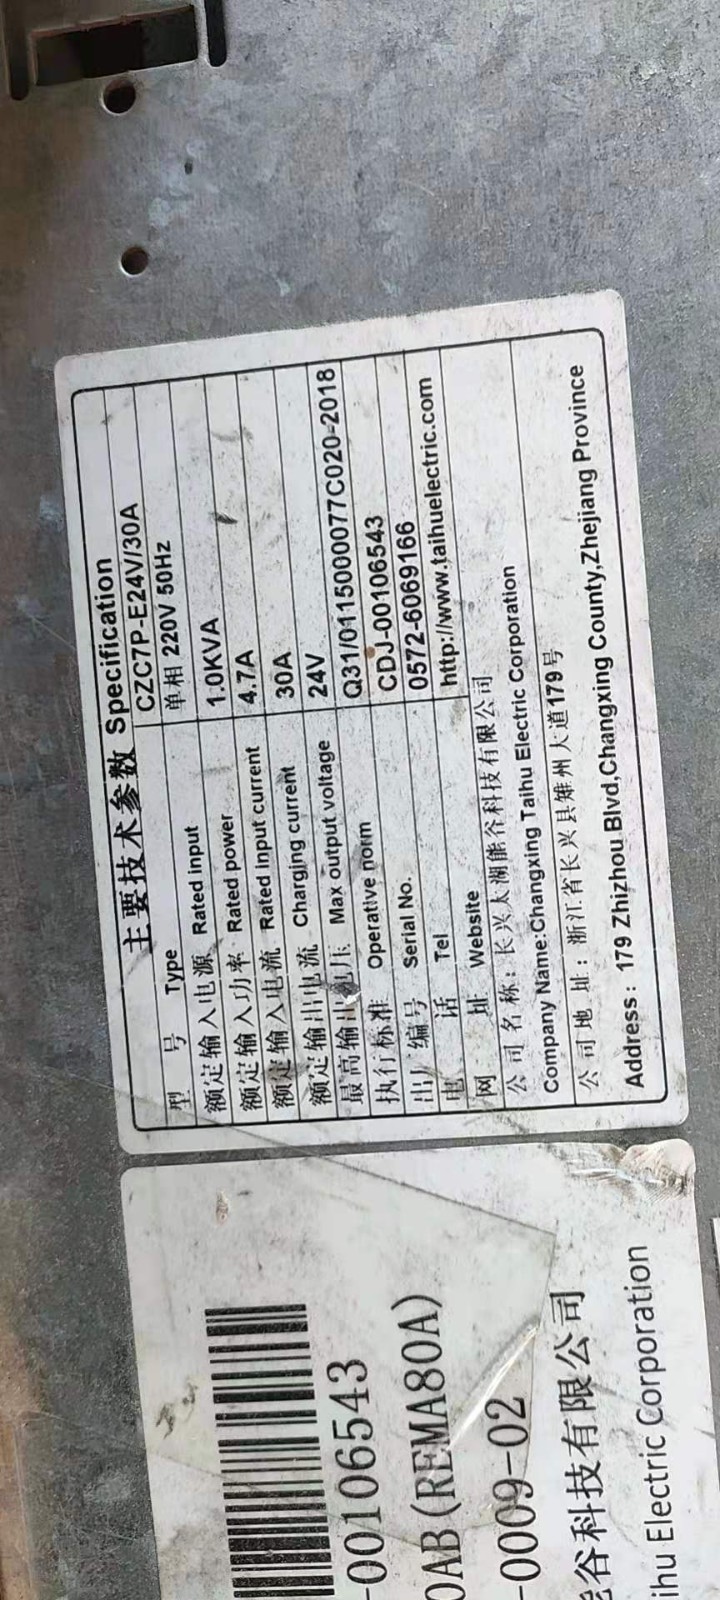 主要技术参数 Specification
型 号 Type CZC7P-E24V/30A
额定输入电源 Rated input 单相 220V 50Hz
额定输入功率 Rated power 1.0KVA
额定输入电流 Rated Input current 4.7A
额定输出电流 Charging current 30A
最高输出电压 Max output voltage 24V
执行标准 Operative norm Q31/0115000077C020-2018
出厂编号 Serial No. CDJ-00106543
电 话 Tel 0572-6069166
网 址 Website http://www.taihuelectric.com
公司名称：长兴太湖能谷科技有限公司
Company Name:Changxing Taihu Electric Corporation
公司地 址：浙江省长兴县雉州大道179号
Address：179 Zhizhou Blvd,Changxing County,Zhejiang Province
-00106543
0AB(REMA80A)
-0009-02
能谷科技有限公司
ihu Electric Corporation